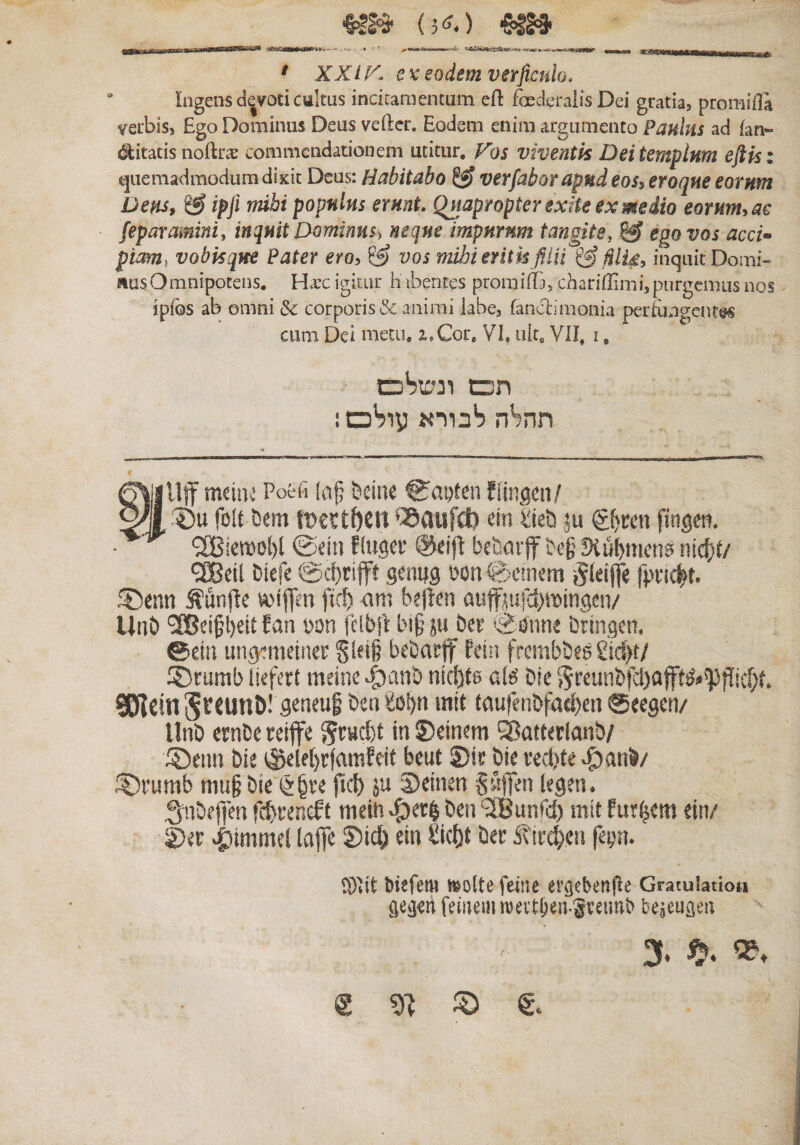 (36.)
XXIV. ex eodem verſiculo.
Ingens devoti cultus incitamentum eſt fœderalis Dei gratia, promiſſa
verbis, Ego Dominus Deus veſter. Eodem enim argumento Paulus ad ſan-
ctitatis noſtræ commendationem utitur. Vos viventis Dei templum eſtis:
quemadmodum dixit Deus: Habitabo & verſabor apud eos, eroque eorum
Deus, & ipſi mihi populus erunt. Quapropter exite ex medio eorum, ac
ſeparamini, inquit Dominus, neque impurum tangite, & ego vos acci-
piam, vobisque Pater ero, & vos mihi eritis filii & filiæ, inquit Domi-
nus Omnipotens. Hæc igitur habentes promiſſa, chariſſimi, purgemus nos
ipſos ab omni & corporis & animi labe, ſanctimonia perfungentes
cum Dei metu. 2. Cor. VI. ult. VII. 1.
תם ונשלם
תהלה לבורא עולם:
AUff meine Poëſi laß deine Sayten klingen/
Du ſolt dem werthen Bauſch ein Lied zu Ehren ſingen.
Wiewohl Sein kluger Geiſt bedarff deß Rühmens nicht/
Weil dieſe Schrifft genug von Seinem Fleiſſe ſpricht.
Denn Künſte wiſſen ſich am beſten auffzuſchwingen/
Und Weißheit kan von ſelbſt biß zu der Sonne dringen.
Sein ungemeiner Fleiß bedarff kein frembdes Licht/
Drumb liefert meine Hand nichts als die Freundſchaffts-Pflicht.
Mein Freund! geneuß den Lohn mit tauſendfachen Seegen/
Und ernde reiffe Frucht in Deinem Vatterland/
Denn die Gelehrſamkeit beut Dir die rechte Hand/
Drumb muß die Ehre ſich zu Deinen Füſſen legen.
Indeſſen ſchrenckt mein Hertz den Wunſch mit kurtzem ein/
Der Himmel laſſe Dich ein Licht der Kirchen ſeyn.
Mit dieſem wolte ſeine ergebenſte Gratulation
gegen ſeinem werthen-Freund bezeugen
J. H. B.
E N D E.